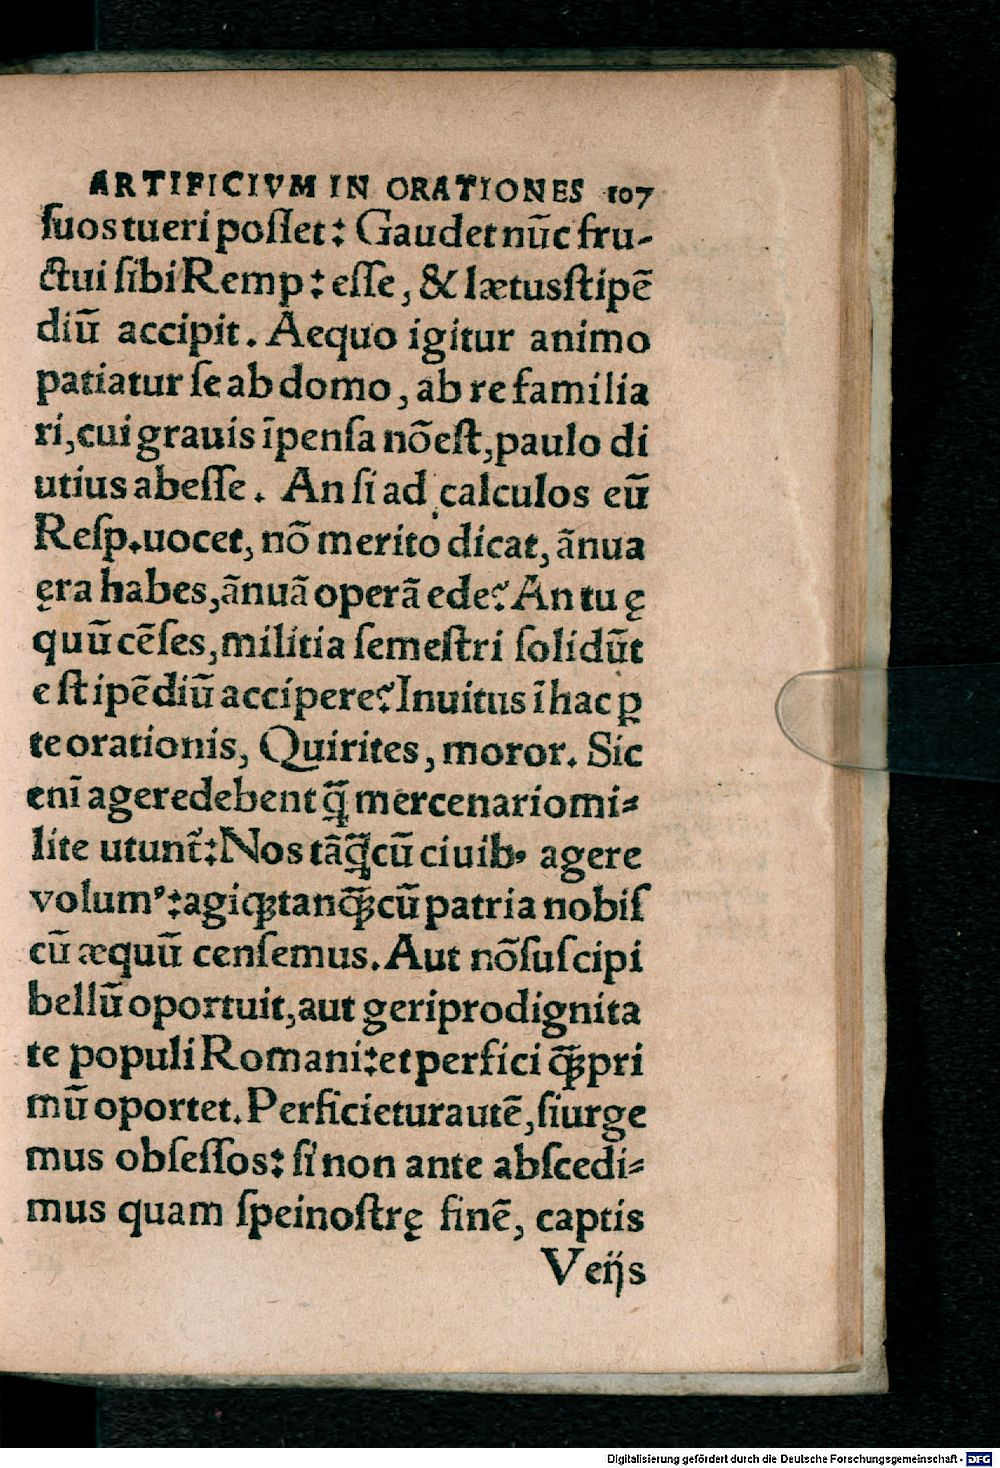 ARTIFICIVM IN ORATIONES 107
ſuos tueri poſſet: Gaudet nũc fru-
ctui ſibi Remp: eſſe, & lætus ſtipẽ
diũ accipit. Aequo igitur animo
patiatur ſe ab domo, ab re familia
ri, cui grauis ĩpenſa nõ eſt, paulo di
utius abeſſe. An ſi ad calculos eũ
Reſp. uocet, nõ merito dicat, ãnua
ęra habes, ãnuã operã ede? An tu ę
quũ cẽſes, militia ſemeſtri ſolidũ t
e ſtipẽdiũ accipere? Inuitus ĩ hac ꝑ
te orationis, Quirites, moror. Sic
enĩ agere debent q̃ mercenario mi-
lite utunt̃: Nos tãq̃ cũ ciuibꝰ agere
volumꝰ: agiqꝫ tanqꝫ̃ cũ patria nobiſ
cũ æquũ cenſemus. Aut nõ ſuſcipi
bellũ oportuit, aut geri pro dignita
te populi Romani: et perfici qꝫ̃ pri
mũ oportet. Perficietur autẽ, ſi urge
mus obſeſſos: ſi non ante abſcedi-
mus quam ſpei noſtrę finẽ, captis
Veijs
Digitalisierung gefördert durch die Deutsche Forschungsgemeinschaft - DFG